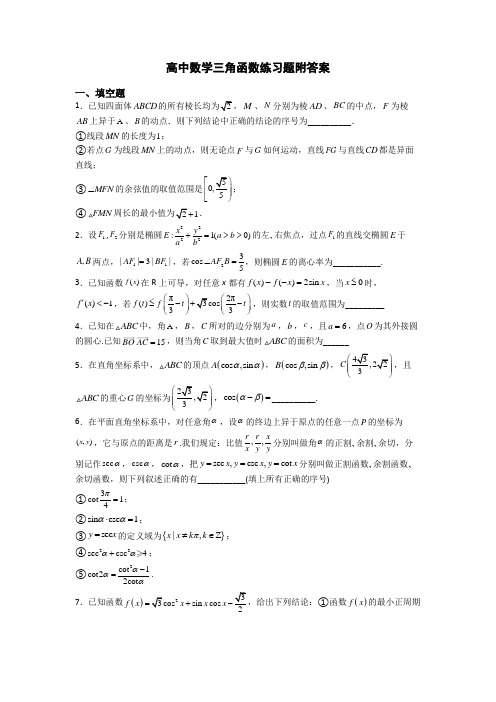 高中数学三角函数练习题附答案
一、填空题
1．已知四面体ABCD的所有棱长均为√2，M、N分别为棱AD、BC的中点，F为棱
AB上异于A、B的动点．则下列结论中正确的结论的序号为__________．
①线段MN的长度为1；
②若点G为线段MN上的动点，则无论点F与G如何运动，直线FG与直线CD都是异面
直线；
③∠MFN的余弦值的取值范围是[0, √5/5)；
④△FMN周长的最小值为√2+1．
2．设F₁,F₂分别是椭圆E: x²/a² + y²/b² = 1(a > b > 0)的左、右焦点，过点F₁的直线交椭圆E于
A,B两点，|AF₁|=3|BF₁|，若cos∠AF₂B = 3/5，则椭圆E的离心率为___________.
3．已知函数f(x)在R上可导，对任意x都有f(x)-f(-x)=2sin x，当x≤0时，
f'(x)<-1，若f(t) ≤ f(π/3 - t) + √3cos(2π/3 - t)，则实数t的取值范围为_________
4．已知在△ABC中，角A，B，C所对的边分别为a，b，c，且a=6，点O为其外接圆
的圆心.已知BO·AC=15，则当角C取到最大值时△ABC的面积为______
5．在直角坐标系中，△ABC的顶点A(cosα,sinα)，B(cosβ,sinβ)，C(4√3/3, 2√2)，且
△ABC的重心G的坐标为(2√3/3, √2)，cos(α-β)=__________.
6．在平面直角坐标系中，对任意角α，设α的终边上异于原点的任意一点P的坐标为
(x,y)，它与原点的距离是r.我们规定：比值r/x, r/y, x/y分别叫做角α的正割、余割、余切，分
别记作secα，cscα，cotα，把y=sec x, y=csc x, y=cot x分别叫做正割函数、余割函数、
余切函数，则下列叙述正确的有___________(填上所有正确的序号)
①cot 3π/4 = 1；
②sinα·cscα=1；
③y=sec x的定义域为{x|x≠kπ,k∈Z}；
④sec²α+csc²α≥4；
⑤cot2α = (cot²α-1)/(2cotα)．
7．已知函数f(x)=√3cos²x+sin x cos x-√3/2，给出下列结论：①函数f(x)的最小正周期